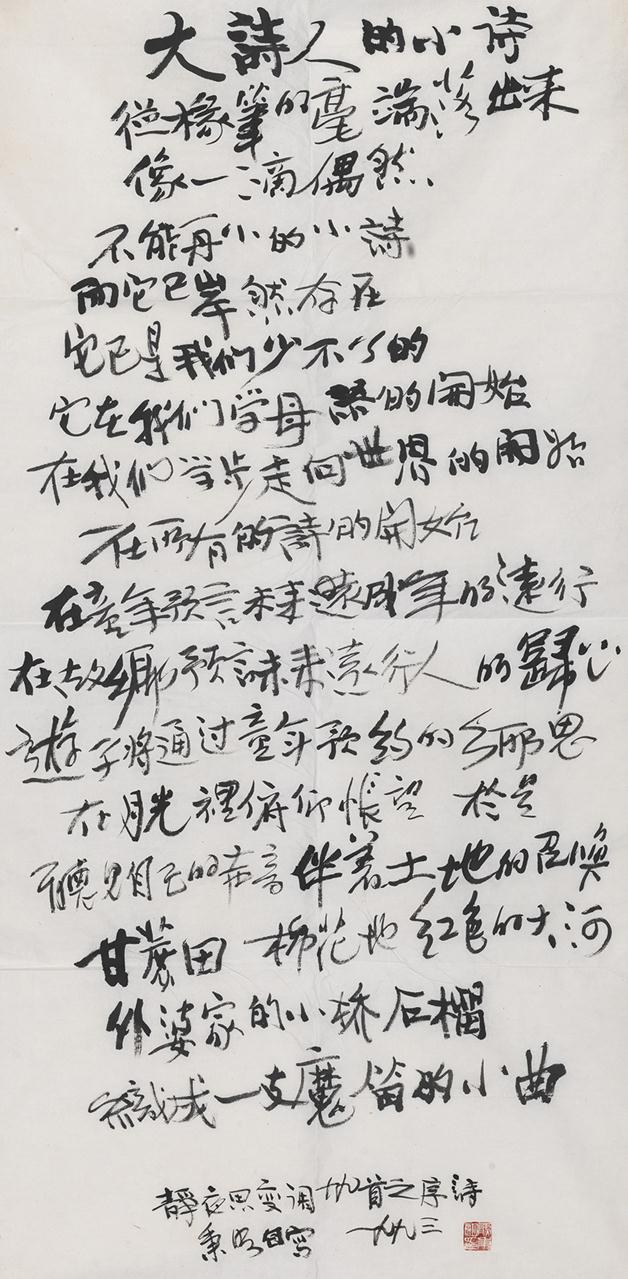 大詩人的小诗
從椽筆的毫端落出来
像一滴偶然
不能再小的小詩
而它已岸然存在
它已是我们少不了的
它在我们学母語的開始
在我们学步走向世界的開始
在所有的詩的開始
在童年预言未来成年的遠行
在故鄉预言未来遠行人的歸心
遊子将通过童年预约的乡思
在月光裡俯仰悵望 於是
聽見自己的声音伴着土地的召唤
甘蔗田 棉花地 红色的大河
外婆家的小桥石榴
織成一支魔笛的小曲
靜夜思变调廿九首之序詩
秉明自写 一九九三